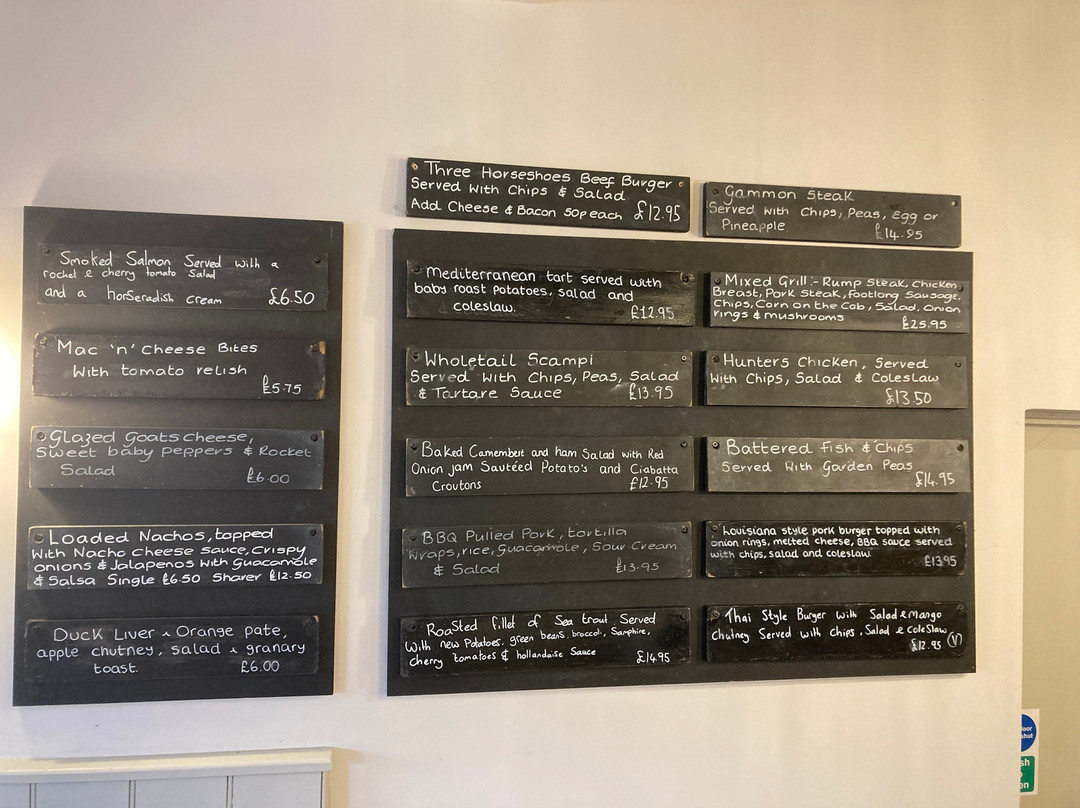 Smoked Salmon Served with a
rocket & cherry tomato Salad
and a horseradish cream £6.50
Mac 'n' Cheese Bites
With tomato relish
£5.75
Glazed Goats cheese,
Sweet baby peppers & Rocket
Salad £6.00
Loaded Nachos, topped
With Nacho Cheese Sauce, Crispy
onions & Jalapenos With Guacamole
& Salsa Single £6.50 Sharer £12.50
Duck Liver & Orange pate,
apple chutney, salad & granary
toast. £6.00
Three Horseshoes Beef Burger
Served With Chips & Salad
Add Cheese & Bacon 50p each £12.95
Mediterranean tart served with
baby roast potatoes, salad and
coleslaw. £12.95
Wholetail Scampi
Served With Chips, Peas, Salad
& Tartare Sauce £13.95
Baked Camembert and ham Salad with Red
Onion jam Sautéed Potato's and Ciabatta
Croutons £12.95
BBQ Pulled Pork, tortilla
Wraps, rice, Guacamole, Sour Cream
& Salad £13.95
Roasted fillet of Sea trout Served
With new Potatoes, green beans, broccoli, Samphire,
cherry tomatoes & hollandaise Sauce £14.95
Gammon Steak
Served with Chips, Peas, Egg or
Pineapple £14.95
Mixed Grill :- Rump Steak, Chicken
Breast, Pork Steak, footlong Sausage,
Chips, Corn on the Cob, Salad, Onion
rings & mushrooms £25.95
Hunters Chicken, Served
With Chips, Salad & Coleslaw
£13.50
Battered Fish & Chips
Served With Garden Peas
£14.95
Louisiana style pork burger topped with
onion rings, melted cheese, BBQ sauce served
with chips, salad and coleslaw.
£13.95
Thai Style Burger With Salad & mango
chutney Served with chips, Salad & ColeSlaw
£12.95 (V)